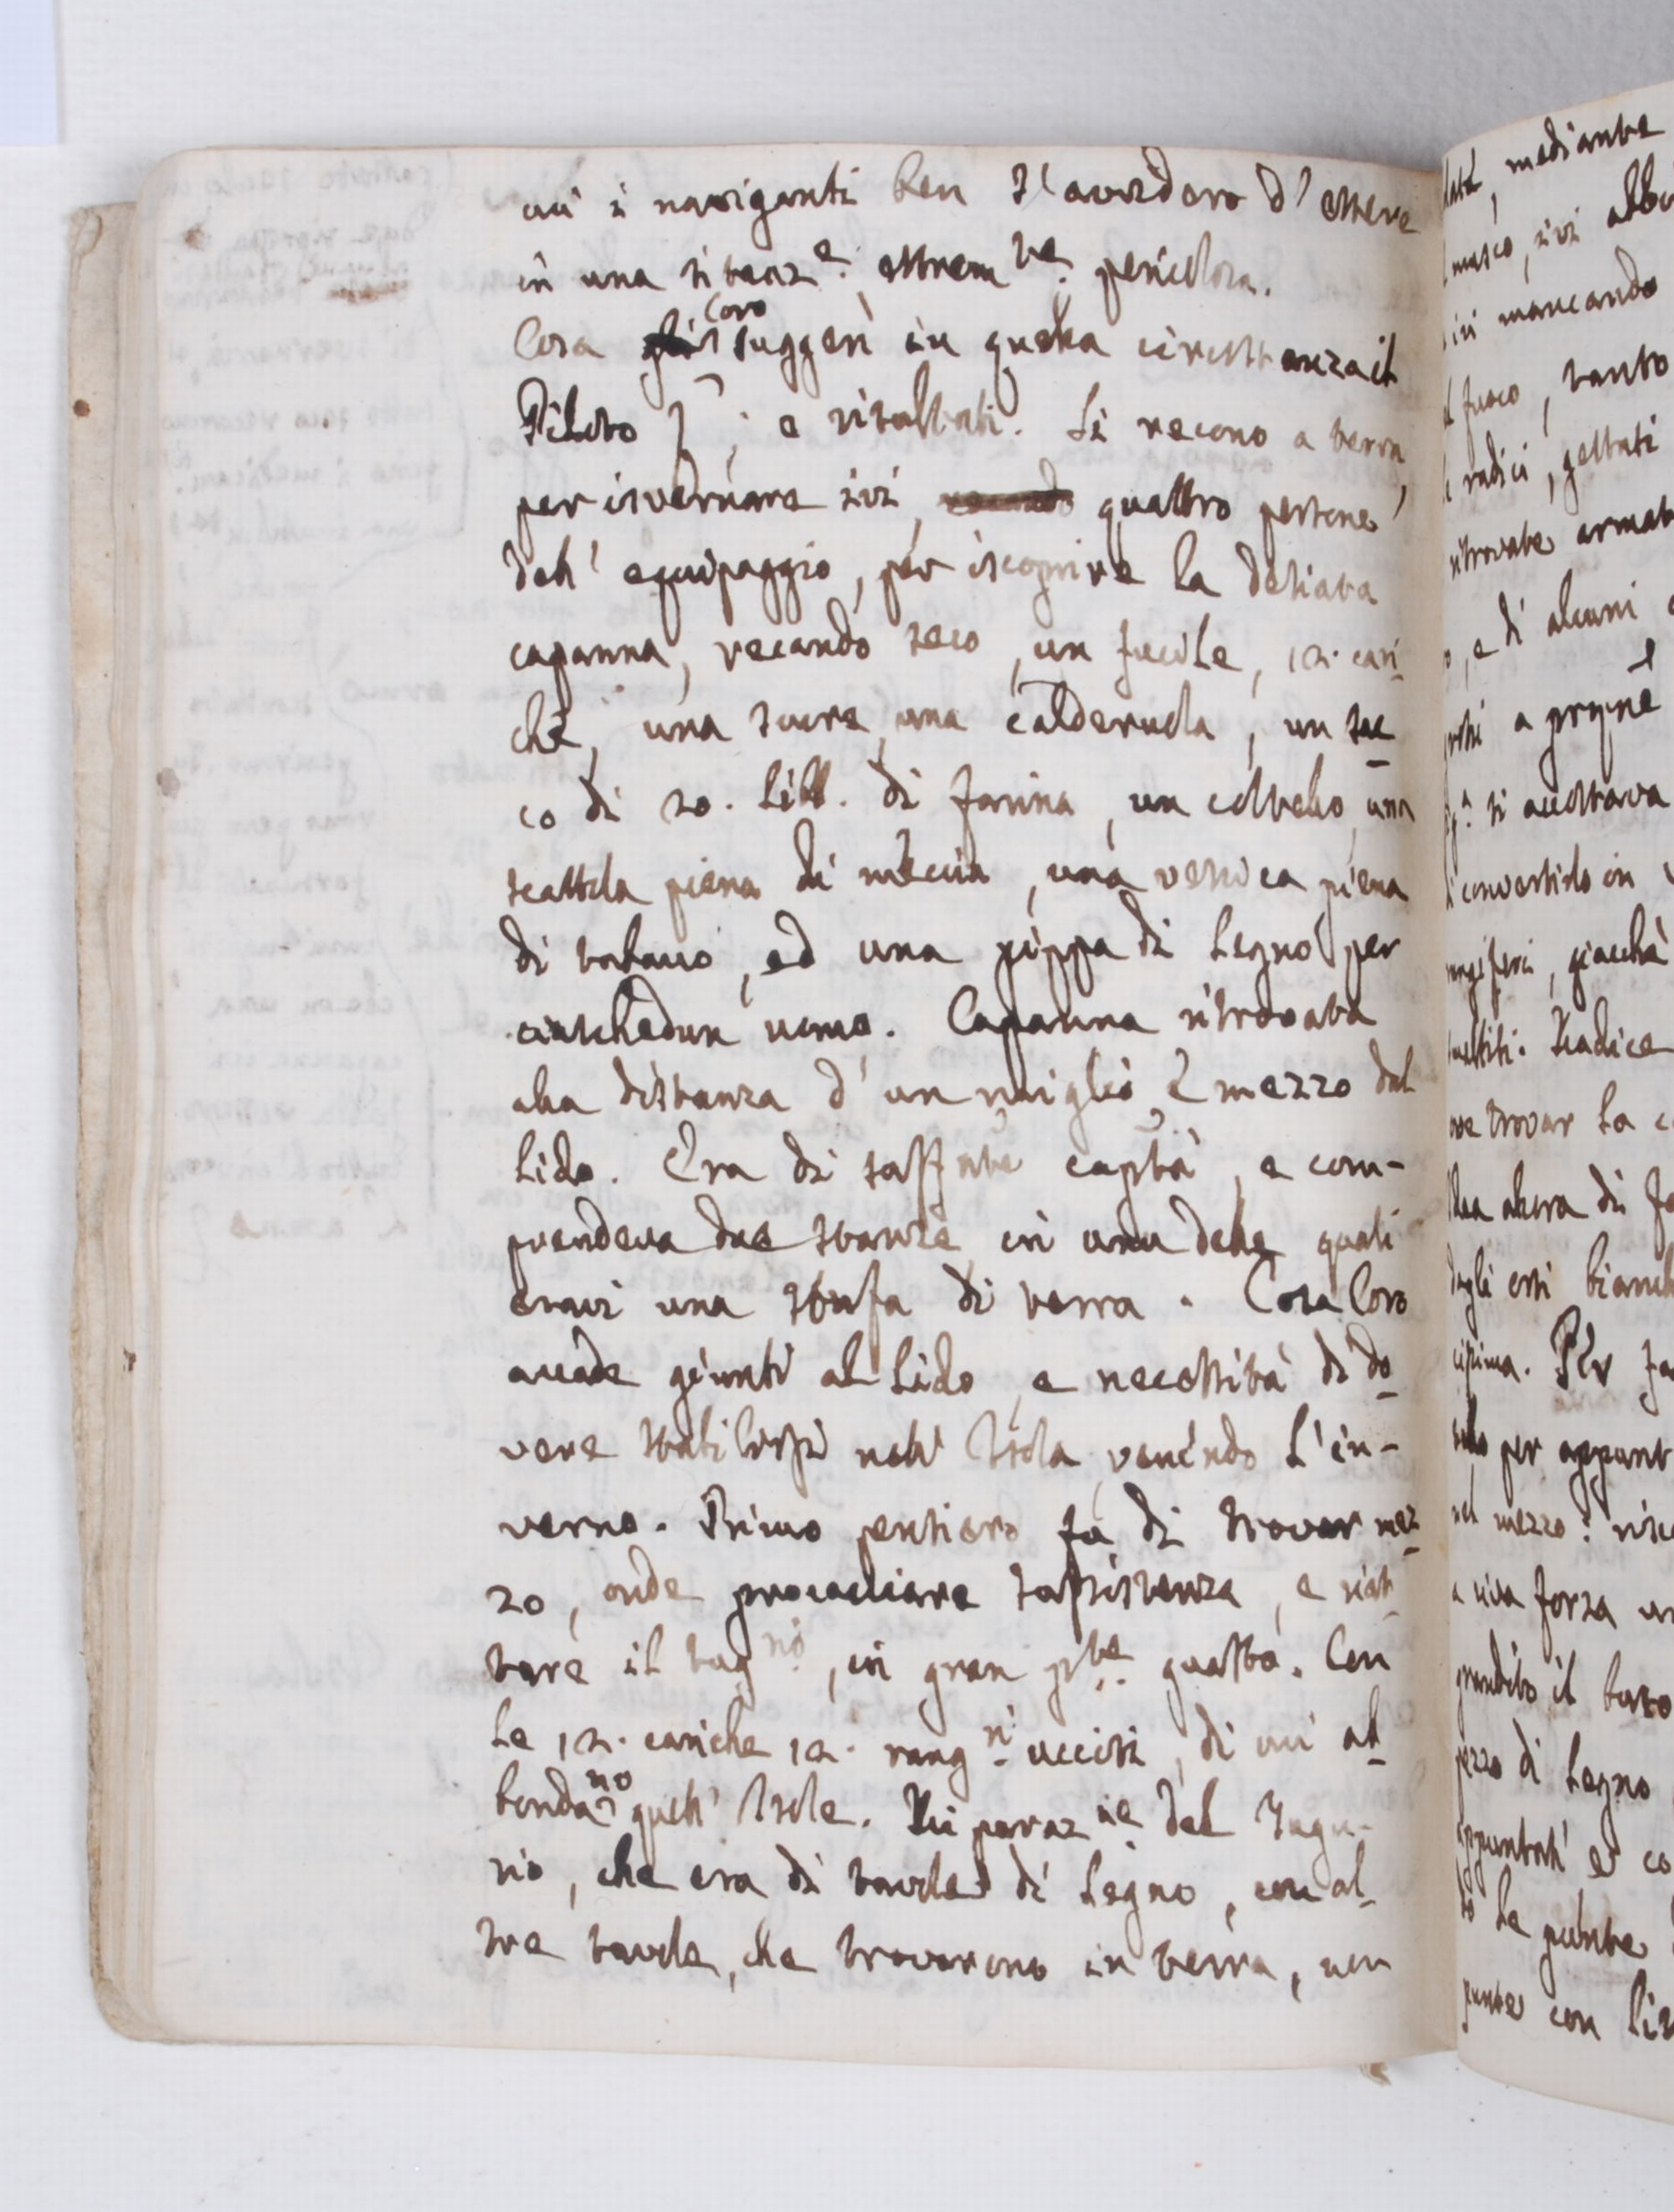 cui i naviganti ben s'avvidero d'essere
in una situaz.e estrem.te pericolosa.
Cosa loro suggerì in questa circostanza il
Piloto ; e risultati. Si recono a terra
per isvernare ivi, quattro persone
dell' equipaggio, per iscoprire la desiata
capanna, recando seco, un fucile, 12. cari-
che, una scure, una calderuola, un sac
co di 20. libb. di farina, un coltello, una
scattola piena di miccia, una vessica piena
di tabacco, ed una pippa di legno per
ciaschedun uomo. Capanna ritrovata
alla distanza d'un miglio e mezzo dal
lido. Era di suff.nte cap.tà, e com-
prendeva due stanze in una delle quali
eravi una stufa di terra. Cosa loro
accade giunti al lido, e necessità di do
vere stabilirsi nell' Isola, venendo l'in-
verno. Primo pensiero fu di trovar mez
zo, onde procacciare sussistenza, e riat
tare il tug.rio, in gran p.te guasto. Con
le 12. cariche 12. rang.ri uccisi, di cui ab
bondano quell' Isole. Riparaz.ne del Tugu-
rio, che era di tavole di legno, con al-
tre tavole, che trovarono in terra, con
late, mediante
musco, ivi abbo
ivi mancando
fuoco, tanto
radici, gettati
ritrovate armat
o, e di alcuni
a propne
si accostava
convertirlo in
ngiferi, giacchè
Radice
ve trovar la c
allora di fa
dagli orsi bianch
Per fa
per appunt
nel mezzo:
a viva forza un
granditо il buco
pezzo di legno
appuntati e co
le punte
punte con